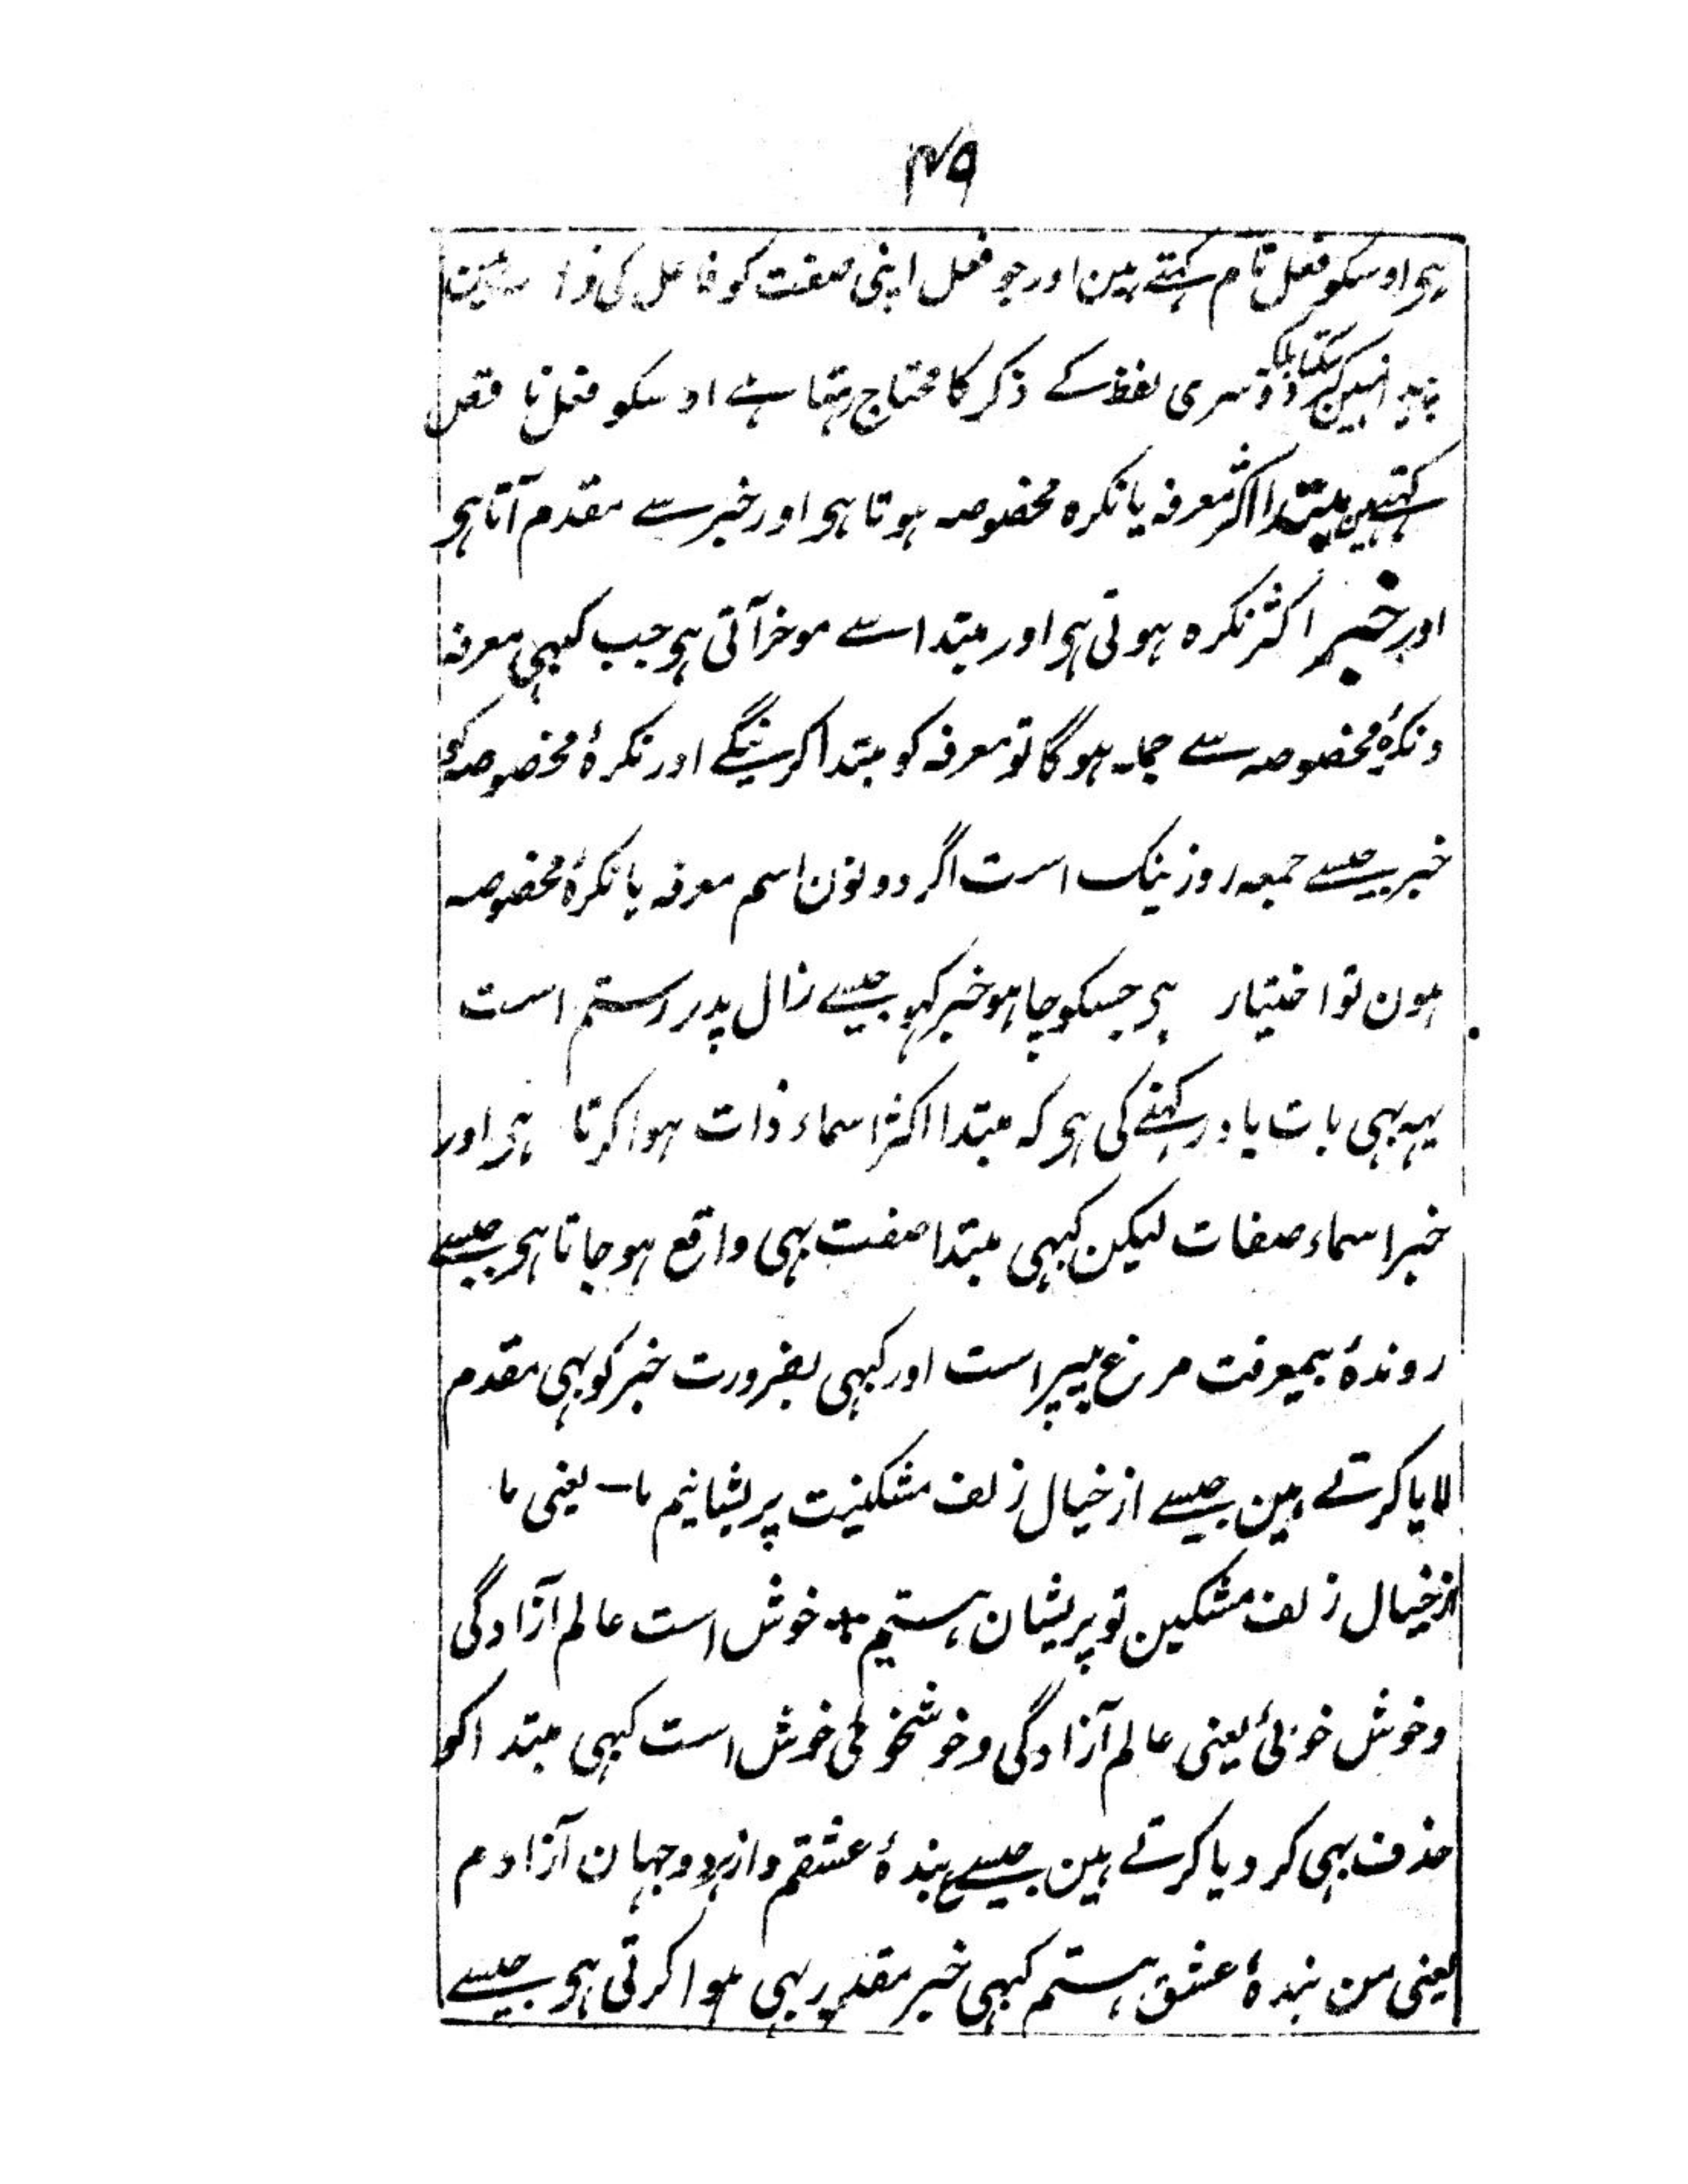 ۴۹
ہی اوسکو فعل تام کہتے ہین اور جو فعل اپنی صفت کو فاعل کی
نہین کر سکتا بلکہ دوسری لفظ کے ذکر کا محتاج رہتا ہے اوسکو فعل ناقص
کہتے ہین مبتدا اکثر معرفہ یا نکرہ مخصوصہ ہوتا ہی اور خبر سے مقدم آتا ہی
اور خبر اکثر نکرہ ہوتی ہی اور مبتدا سے موخر آتی ہی جب کبہی معرفہ
و نکرۂ مخصوصہ سے جملہ ہوگا تو معرفہ کو مبتدا کرینگے اور نکرۂ مخصوصہ کو
خبر جیسے جمعہ روز نیک است اگر دونون اسم معرفہ یا نکرۂ مخصوصہ
ہون تو اختیار ہی جسکو چاہو خبر کہو جیسے زال پدر رستم است
یہہ بہی بات یاد رکہنے کی ہی کہ مبتدا اکثر اسماء ذات ہوا کرتا ہی اور
خبر اسماء صفات لیکن کبہی مبتدا صفت بہی واقع ہو جاتا ہی جیسے
روندۂ بیمعرفت مرغ بیپر است اور کبہی بضرورت خبر کو بہی مقدم
لایا کرتے ہین جیسے از خیال زلف مشکینت پریشانیم ما - یعنی ما
از خیال زلف مشکین تو پریشان ہستیم + خوش است عالم آزادگی
و خوش خوئی یعنی عالم آزادگی و خوشخوئی خوش است کبہی مبتدا کو
حذف بہی کر دیا کرتے ہین جیسے ع بندۂ عشقم و از ہر دو جہان آزادم
یعنی من بندۂ عشق ہستم کبہی خبر مقدر بہی ہوا کرتی ہی جیسے